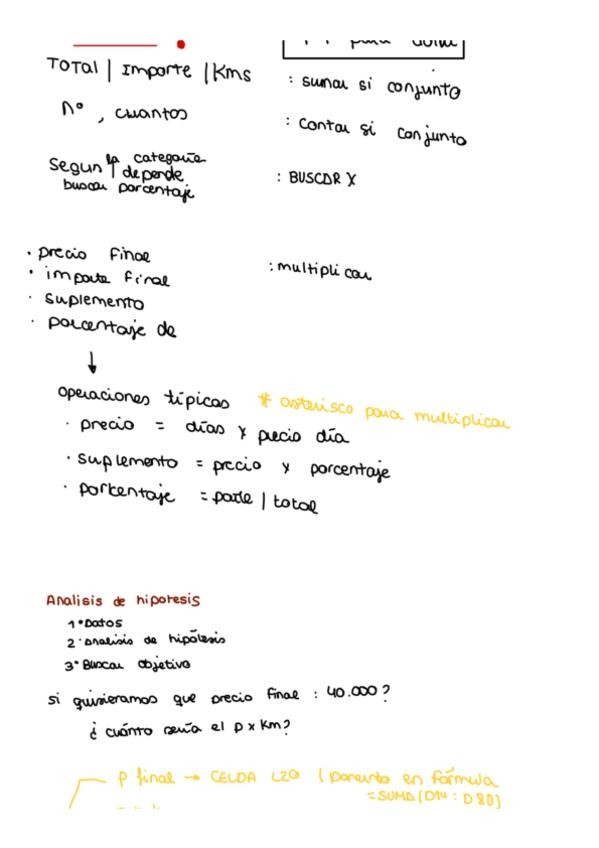 TOTAL | Importe | Kms : sumar si conjunto
nº , cuantos : contar si conjunto
Segun la categoria depende buscar porcentaje : BUSCAR X
· precio final
· importe final : multiplicar
· suplemento
· porcentaje de
↓
operaciones típicas * asterisco para multiplicar
· precio = días x precio día
· suplemento = precio x porcentaje
· porcentaje = parte | total
Analisis de hipotesis
1º Datos
2· analisis de hipótesis
3º Buscar objetivo
si quisieramos que precio final : 40.000?
¿ cuánto sería el p x km?
p final → CELDA L20 ( en fórmula
=SUMA (D14 : D80)